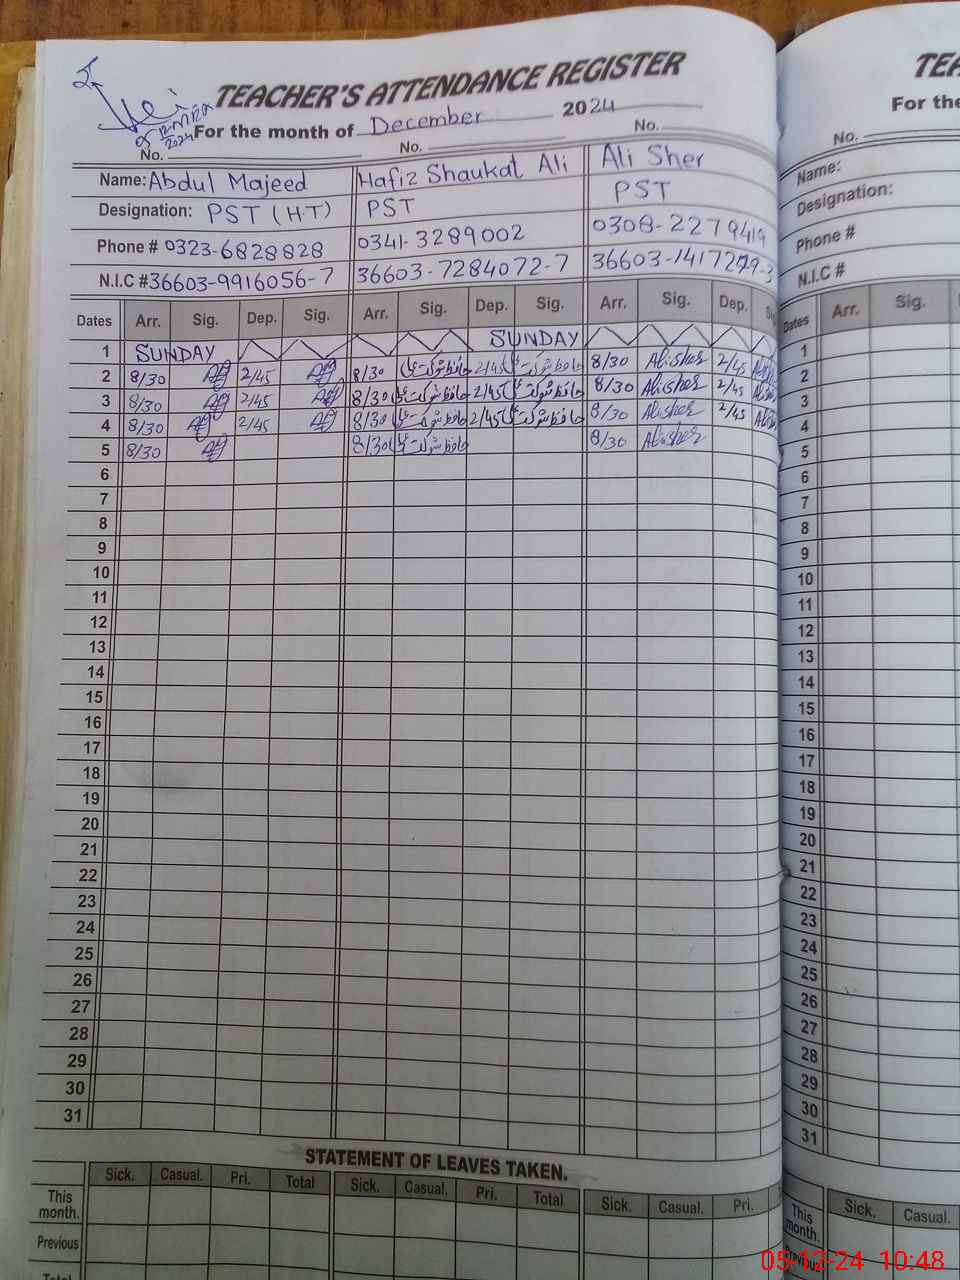 TEACHER'S ATTENDANCE REGISTER
For the month of December 2024
No. No. No.
Name: Abdul Majeed Hafiz Shaukat Ali Ali Sher
Designation: PST (H.T) PST PST
Phone # 0323-6828828 0341-3289002 0308-2279419
N.I.C # 36603-9916056-7 36603-7284072-7
Dates Arr. Sig. Dep. Sig. Arr. Sig. Dep. Sig. Arr. Sig. Dep.
1 SUNDAY SUNDAY
2 8/30 2/45 8/30 حافظ شوکت علی 2/45 حافظ شوکت علی 8/30 Alisher 2/45
3 8/30 2/45 8/30 حافظ شوکت علی 2/45 حافظ شوکت علی 8/30 Alisher 2/45
4 8/30 2/45 8/30 حافظ شوکت علی 2/45 حافظ شوکت علی 8/30 Alisher 2/45
5 8/30 8/30 حافظ شوکت علی 8/30 Alisher
6
7
8
9
10
11
12
13
14
15
16
17
18
19
20
21
22
23
24
25
26
27
28
29
30
31
STATEMENT OF LEAVES TAKEN.
Sick. Casual. Pri. Total Sick. Casual. Pri. Total Sick. Casual. Pri.
This month.
Previous
Total
For the
No.
Name:
Designation:
Phone #
N.I.C #
Dates Arr. Sig.
1
2
3
4
5
6
7
8
9
10
11
12
13
14
15
16
17
18
19
20
21
22
23
24
25
26
27
28
29
30
31
Sick. Casual.
This month.
Previous
05-12-24 10:48